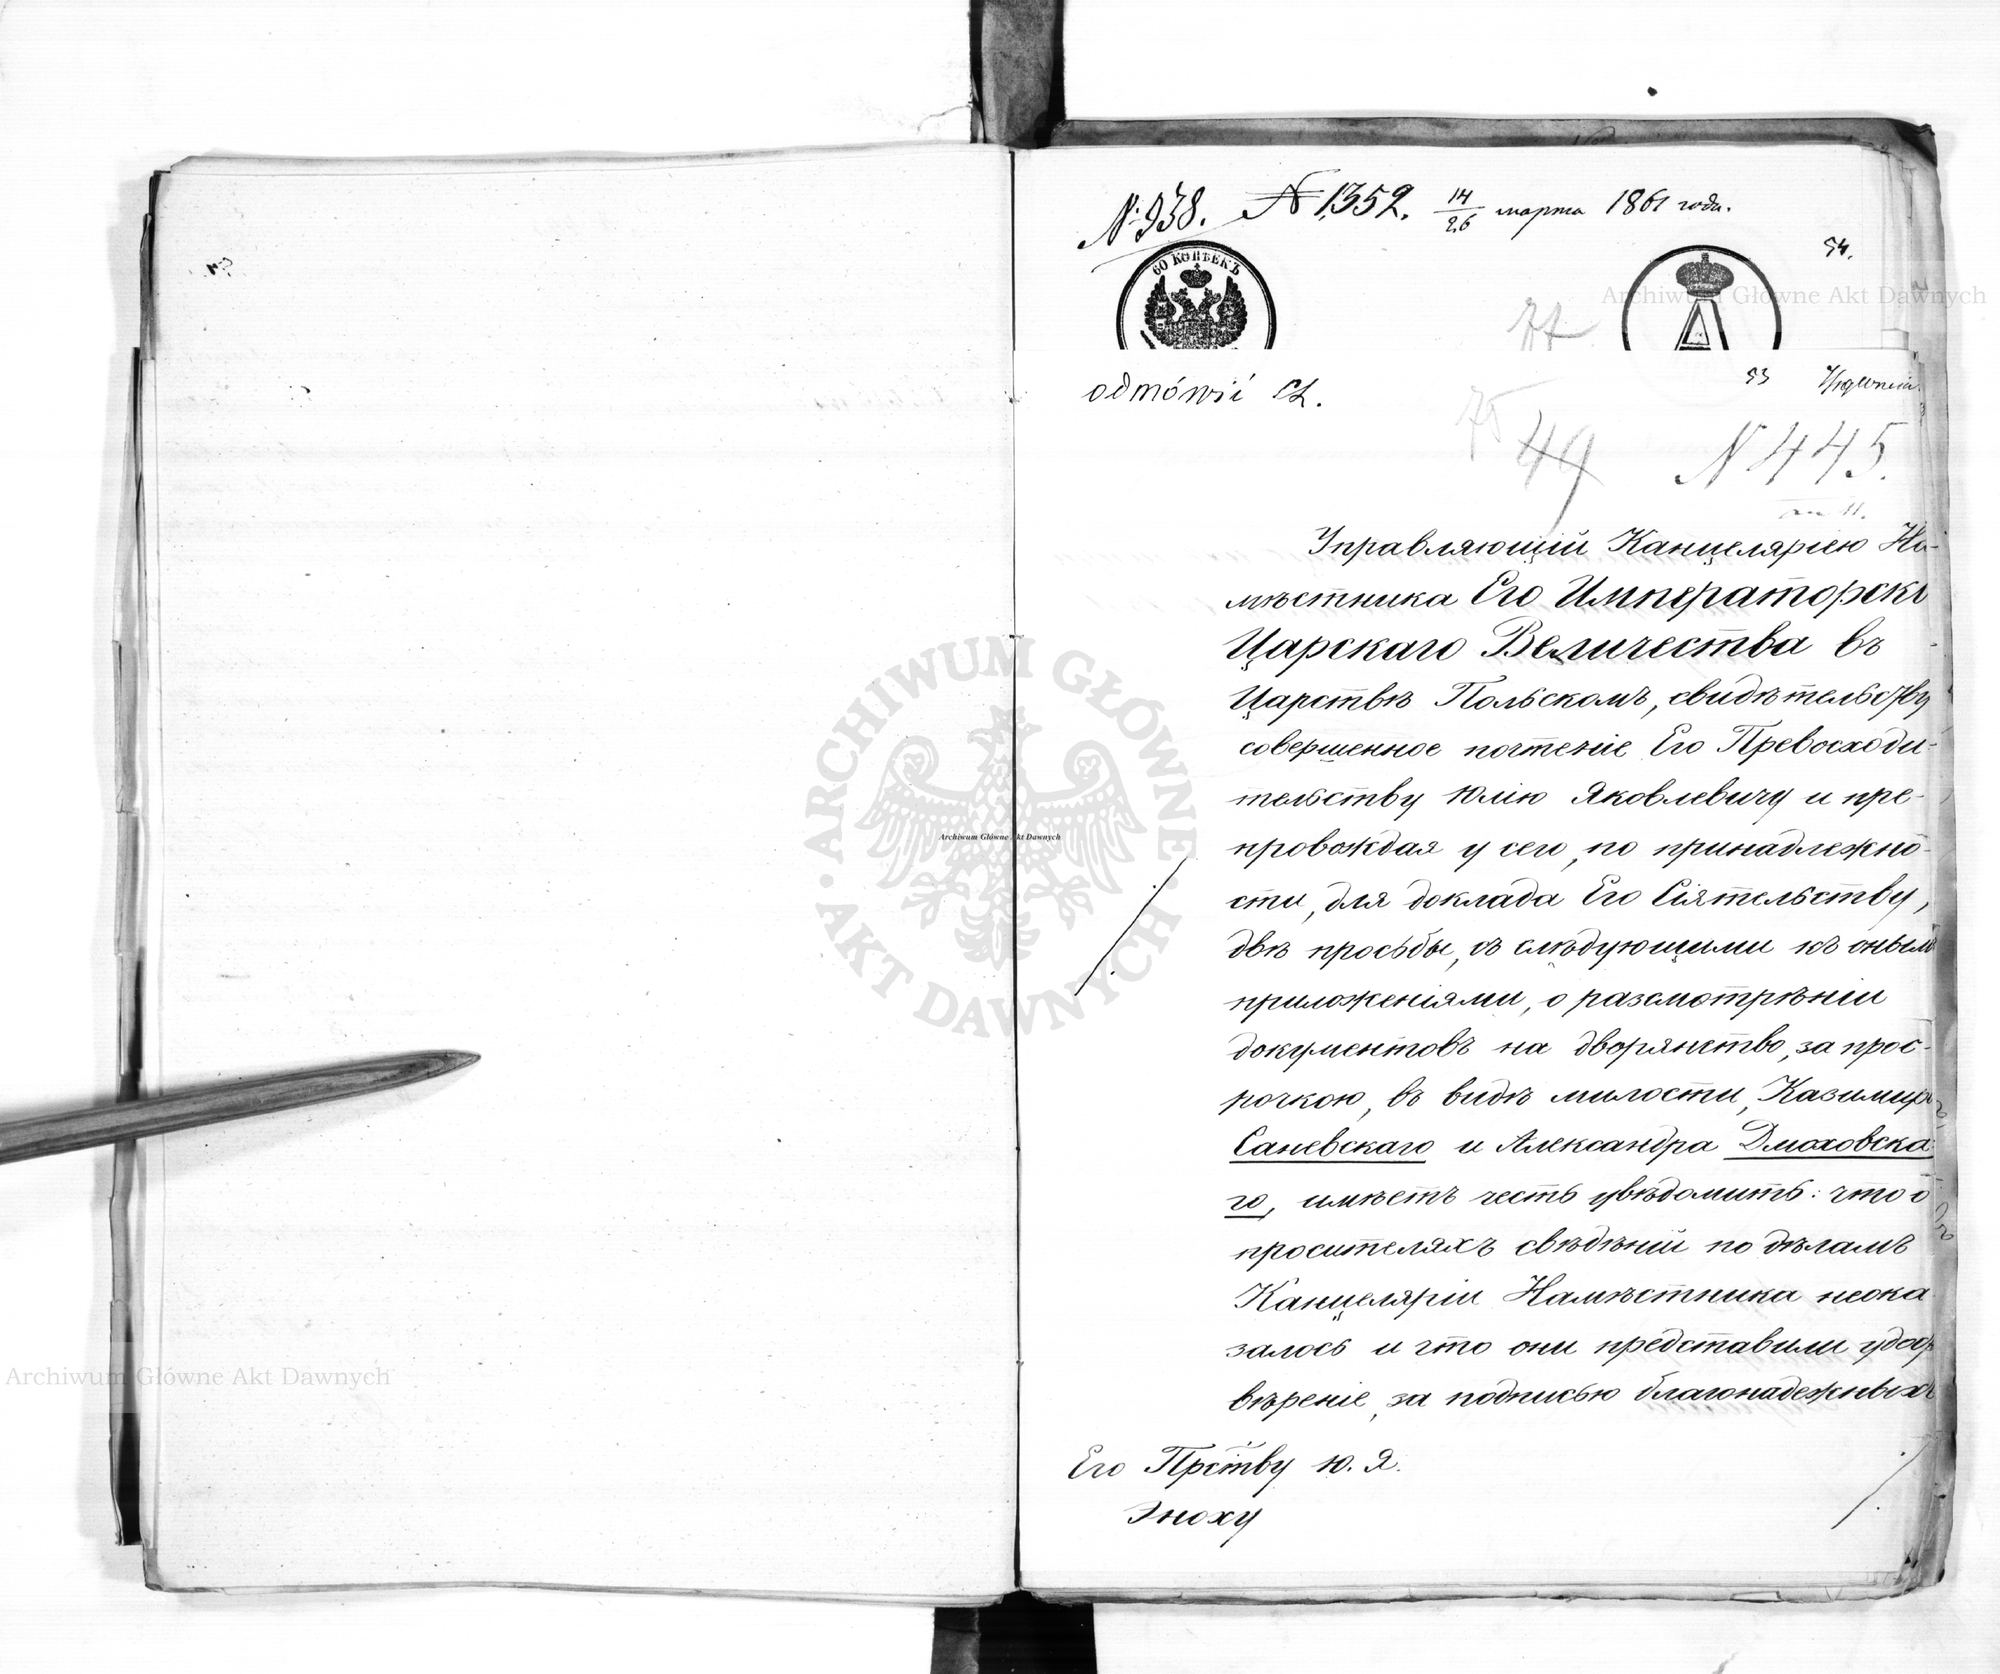 № 938. № 1352. 14/26 марта 1861 года.
60 КОПѢЕКЪ
54.
odmówić
53
49
N 445.
Управляющій Канцеляріею На-
мѣстника Его Императорск
Царскаго Величества въ
Царствѣ Польскомъ, свидѣтельству
совершенное почтеніе Его Превосходи-
тельству Юлію Яковлевичу и пре-
провождая у сего, по принадлежно-
сти, для доклада Его Сіятельству,
двѣ просьбы, съ слѣдующими къ онымъ
приложеніями, о разсмотрѣніи
документовъ на дворянство, за прос-
рочкою, въ видѣ милости, Казимир
Саневскаго и Александра Дмоховска
го, имѣетъ честь увѣдомить: что о
просителяхъ свѣдѣній по дѣламъ
Канцеляріи Намѣстника неока
залось и что они представили удост
вѣреніе, за подписью благонадежныхъ
Его Прству Ю. Я.
Эноху
ARCHIWUM GŁÓWNE
AKT DAWNYCH
Archiwum Główne Akt Dawnych
Archiwum Główne Akt Dawnych
Archiwum Główne Akt Dawnych